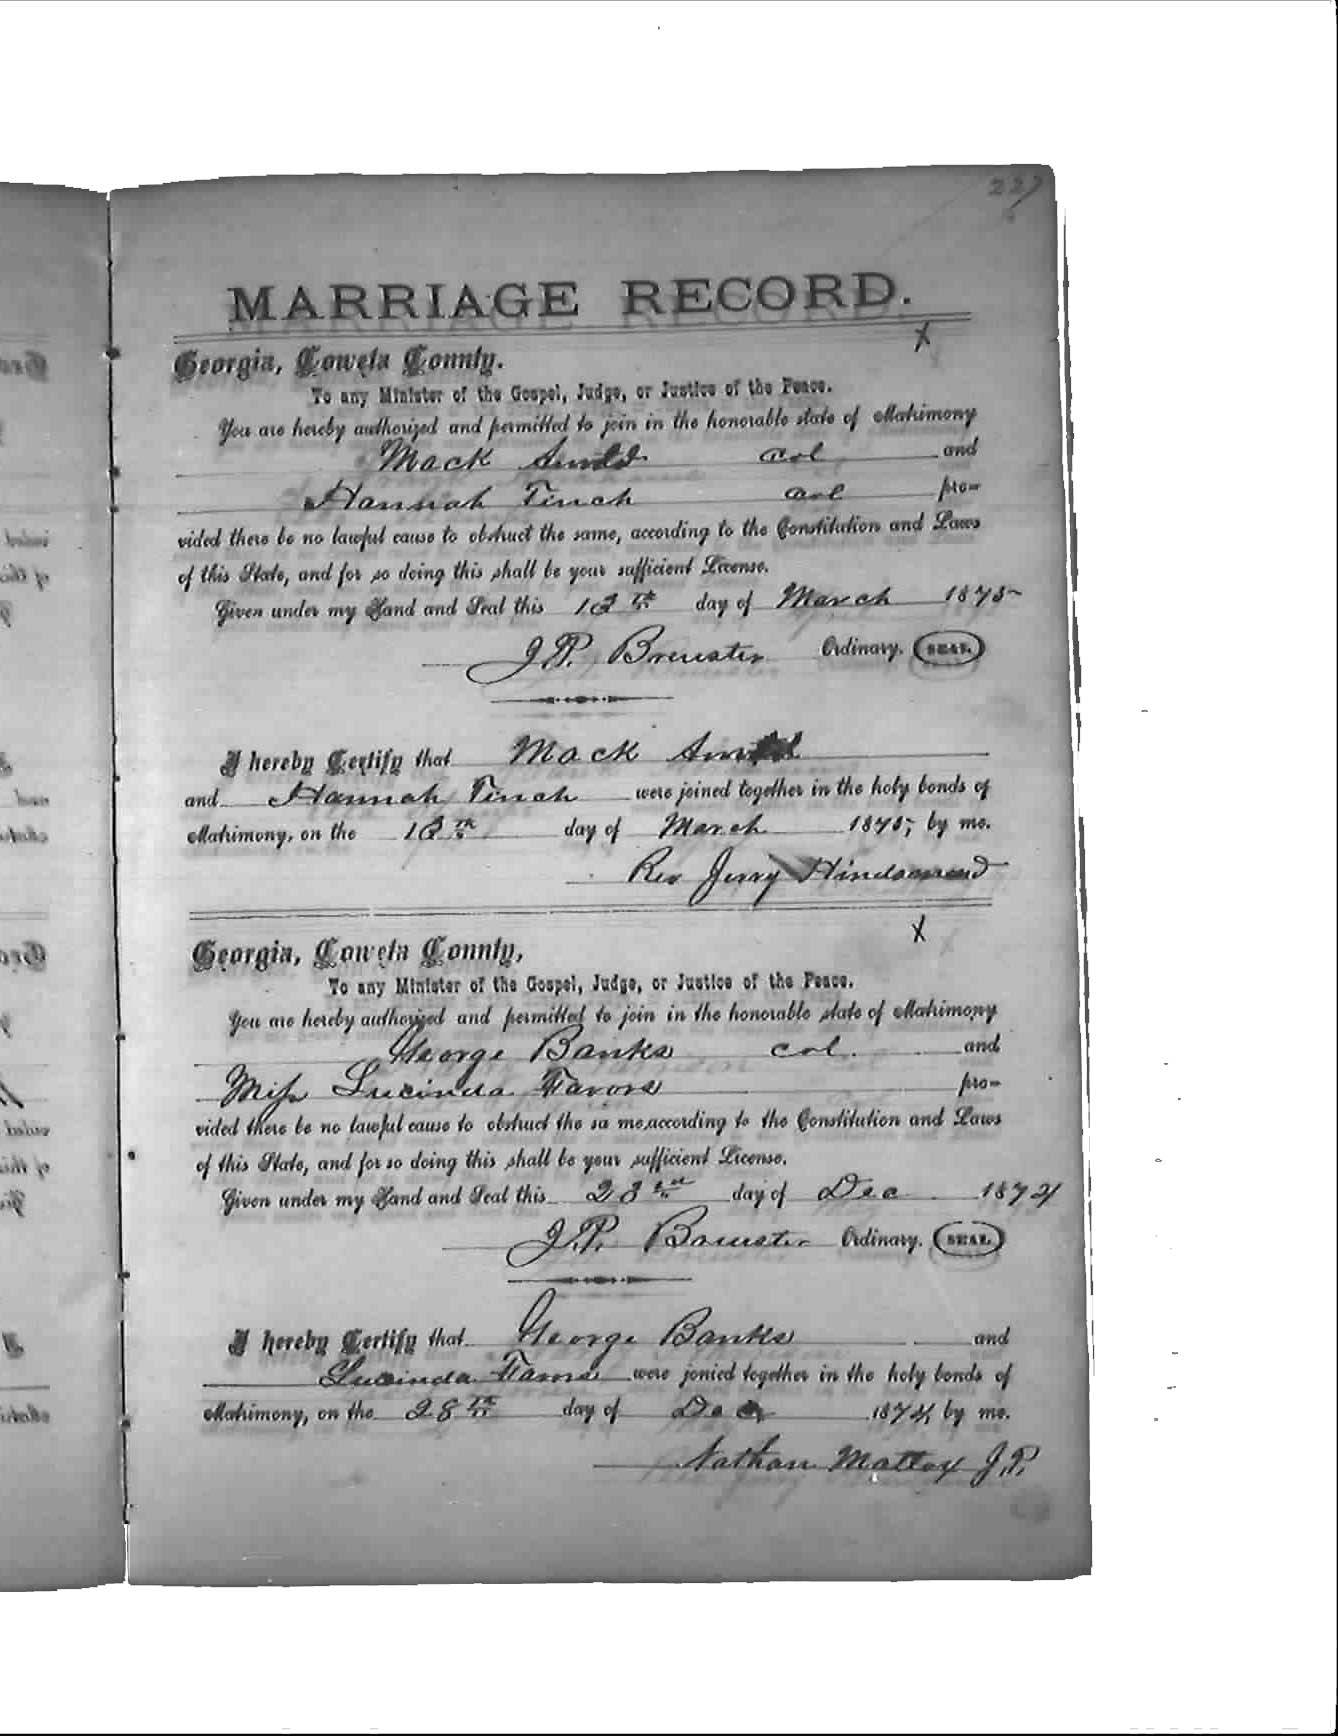 227
MARRIAGE RECORD.
X
Georgia, Coweta County.
To any Minister of the Gospel, Judge, or Justice of the Peace.
You are hereby authorized and permitted to join in the honorable state of Matrimony
Mack col and
Hannah Tinch col pro-
vided there be no lawful cause to obstruct the same, according to the Constitution and Laws
of this State, and for so doing this shall be your sufficient License.
Given under my Hand and Seal this 13th day of March 1875
J.P. Brewster Ordinary. SEAL.
I hereby Certify that Mack
and Hannah Tinch were joined together in the holy bonds of
Matrimony, on the 13th day of March 1875, by me.
Rev Jerry
X
Georgia, Coweta County,
To any Minister of the Gospel, Judge, or Justice of the Peace.
You are hereby authorized and permitted to join in the honorable state of Matrimony
George Banks col. and
Miss Lucinda Favors pro-
vided there be no lawful cause to obstruct the sa me,according to the Constitution and Laws
of this State, and for so doing this shall be your sufficient License.
Given under my Hand and Seal this 23rd day of Dec 1874
J.P. Brewster Ordinary. SEAL.
I hereby Certify that George Banks and
Lucinda Favors were jonied together in the holy bonds of
Matrimony, on the 28th day of Dec 1874, by me.
Nathan Mattox J.P.